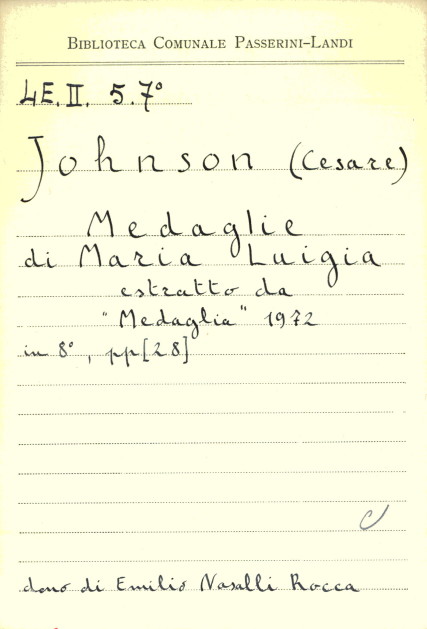 BIBLIOTECA COMUNALE PASSERINI-LANDI
4E. II. 5.7°
Johnson (Cesare)
Medaglie
di Maria Luigia
estratto da
"Medaglia" 1972
in 8°, pp [28]
dono di Emilio Nasalli Rocca